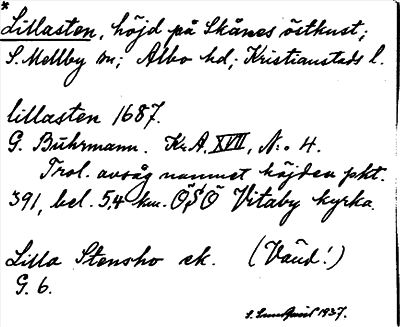 *
Lillasten, höjd på Skånes östkust;
S. Mellby sn; Albo hd; Kristianstads l.
lillasten 1687.
G. Buhrmann. Kr.A. XVII, N:o 4.
Trol. avsåg namnet höjden pkt.
391, bel. 5,4 km. ÖSÖ Vitaby kyrka.
Lilla Stensho ek. (Vänd!)
G. 6.
1937.